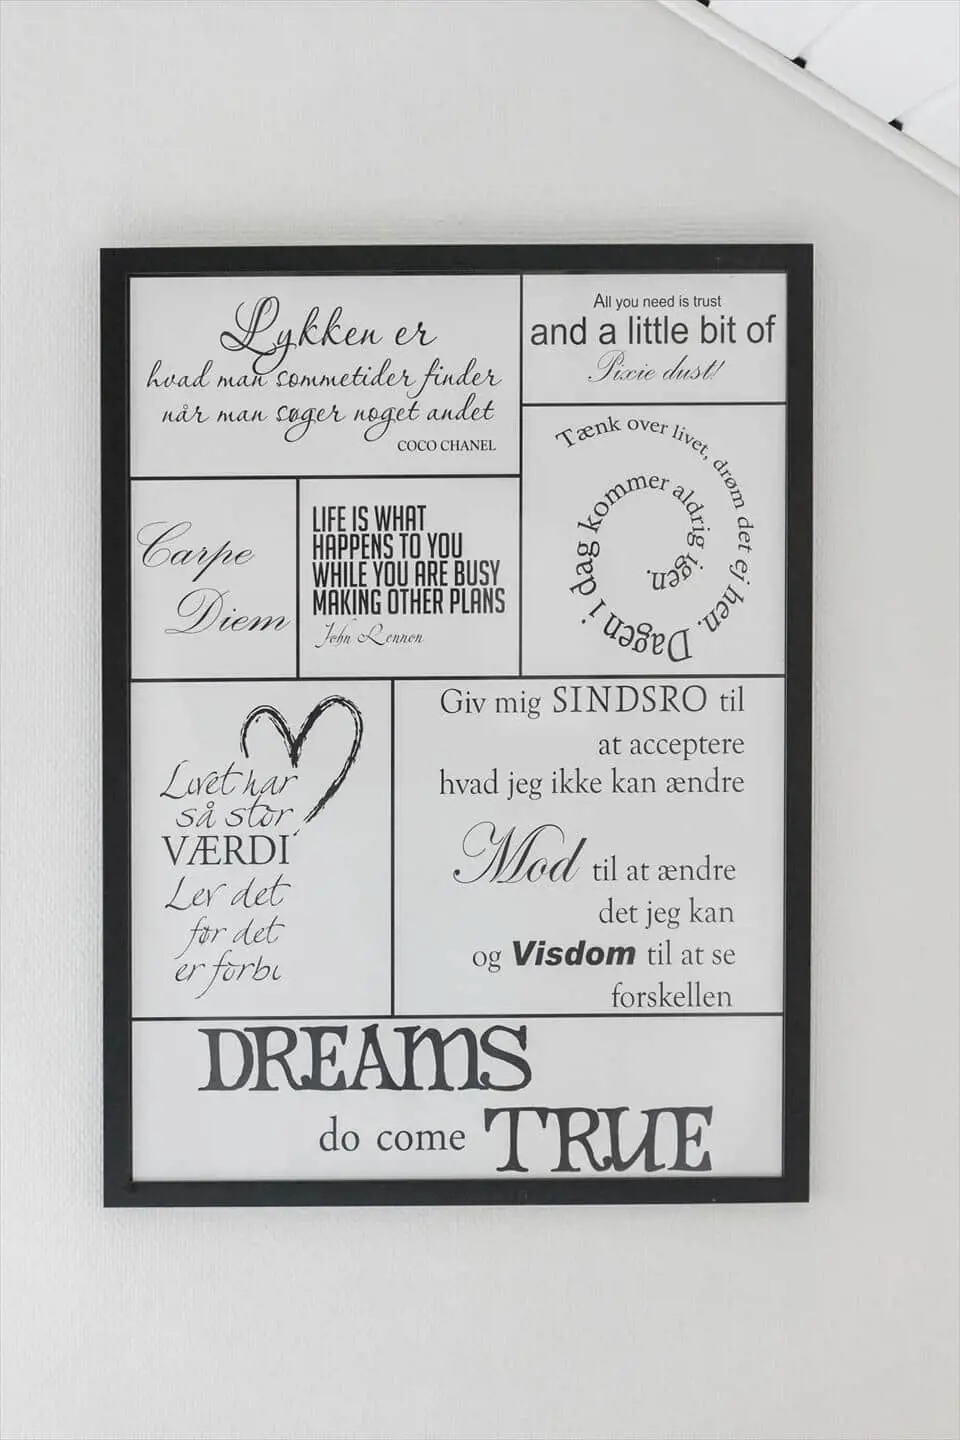 Lykken er
hvad man sommetider finder
når man søger noget andet
COCO CHANEL
All you need is trust
and a little bit of
Pixie dust!
Tænk over livet, drøm det ej hen. Dagen i dag kommer aldrig igen.
Carpe
Diem
LIFE IS WHAT
HAPPENS TO YOU
WHILE YOU ARE BUSY
MAKING OTHER PLANS
John Lennon
Livet har
så stor
VÆRDI
Lev det
før det
er forbi
Giv mig SINDSRO til
at acceptere
hvad jeg ikke kan ændre
Mod til at ændre
det jeg kan
og Visdom til at se
forskellen
DREAMS
do come TRUE